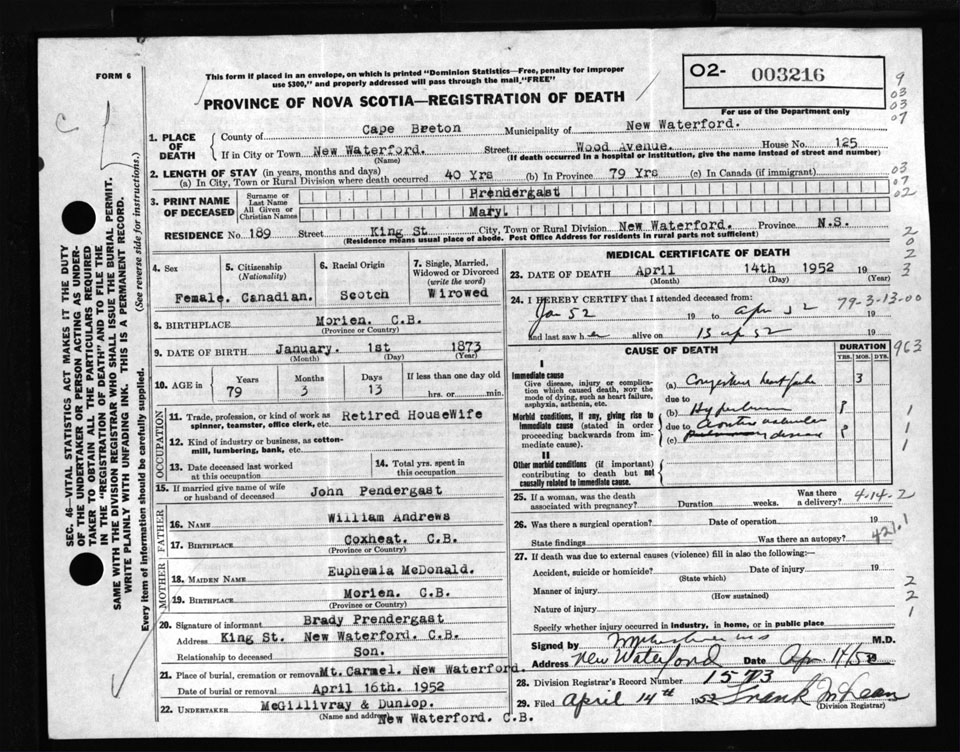 FORM 6
This form if placed in an envelope, on which is printed "Dominion Statistics—Free, penalty for improper
use $300," and properly addressed will pass through the mail, "FREE"
PROVINCE OF NOVA SCOTIA—REGISTRATION OF DEATH
O2- 003216
For use of the Department only
9
03
03
07
C
1. PLACE OF DEATH
County of Cape Breton Municipality of New Waterford.
If in City or Town New Waterford. Street Wood Avenue. House No. 125
(Name) (If death occurred in a hospital or institution, give the name instead of street and number)
2. LENGTH OF STAY (in years, months and days)
(a) In City, Town or Rural Division where death occurred 40 Yrs (b) In Province 79 Yrs (c) In Canada (if immigrant)
03
07
02
3. PRINT NAME OF DECEASED
Surname or Last Name Prendergast
All Given or Christian Names Mary.
RESIDENCE No. 189 Street King St City, Town or Rural Division New Waterford. Province N.S.
(Residence means usual place of abode. Post Office Address for residents in rural parts not sufficient)
2
0
2
3
4. Sex Female.
5. Citizenship (Nationality) Canadian.
6. Racial Origin Scotch
7. Single, Married, Widowed or Divorced (write the word) Wirowed
8. BIRTHPLACE Morien. C.B.
(Province or Country)
9. DATE OF BIRTH January. 1st 1873
(Month) (Day) (Year)
10. AGE in Years Months Days If less than one day old
79 3 13 hrs. or min.
OCCUPATION
11. Trade, profession, or kind of work as spinner, teamster, office clerk, etc. Retired HouseWife
12. Kind of industry or business, as cotton-mill, lumbering, bank, etc.
13. Date deceased last worked at this occupation
14. Total yrs. spent in this occupation
15. If married give name of wife or husband of deceased John Pendergast
FATHER
16. NAME William Andrews
17. BIRTHPLACE Coxheat. C.B.
(Province or Country)
MOTHER
18. MAIDEN NAME Euphemia McDonald.
19. BIRTHPLACE Morien. C.B.
(Province or Country)
20. Signature of informant Brady Prendergast
Address King St. New Waterford. C.B.
Relationship to deceased Son.
21. Place of burial, cremation or removal Mt. Carmel. New Waterford.
Date of burial or removal April 16th. 1952
22. UNDERTAKER McGillivray & Dunlop.
(Name and address) New Waterford. C.B.
MEDICAL CERTIFICATE OF DEATH
23. DATE OF DEATH April 14th 1952 19
(Month) (Day) (Year)
24. I HEREBY CERTIFY that I attended deceased from:
Jan 52 19 to Apr 52 19
79-3-13-00
And last saw h er alive on 13 Ap 52 19
CAUSE OF DEATH
DURATION
YRS. MOS. DYS.
963
I
Immediate cause
Give disease, injury or complication which caused death, Not the mode of dying, such as heart failure, asphyxia, asthenia, etc.
(a) Congestive heart failure 3
due to
Morbid conditions, if any, giving rise to immediate cause (stated in order proceeding backwards from immediate cause).
(b) ?
due to Aortic valvular
(c) disease ?
1
1
II
Other morbid conditions (if important) contributing to death but not causally related to immediate cause.
25. If a woman, was the death associated with pregnancy? Duration weeks. Was there a delivery?
4-14-2
26. Was there a surgical operation? Date of operation 19
State findings Was there an autopsy?
421.1
27. If death was due to external causes (violence) fill in also the following:—
Accident, suicide or homicide? Date of injury 19
(State which)
Manner of injury
(How sustained)
Nature of injury
Specify whether injury occurred in industry, in home, or in public place
2
2
1
Signed by M.D.
Address New Waterford Date Apr 14/52
28. Division Registrar's Record Number 1573
29. Filed April 14th 1952 Frank McLean
(Division Registrar)
SEC. 46—VITAL STATISTICS ACT MAKES IT THE DUTY
OF THE UNDERTAKER OR PERSON ACTING AS UNDER-
TAKER TO OBTAIN ALL THE PARTICULARS REQUIRED
IN THE "REGISTRATION OF DEATH" AND TO FILE THE
SAME WITH THE DIVISION REGISTRAR WHO SHALL ISSUE THE BURIAL PERMIT.
WRITE PLAINLY WITH UNFADING INK. THIS IS A PERMANENT RECORD.
Every item of information should be carefully supplied. (See reverse side for instructions.)